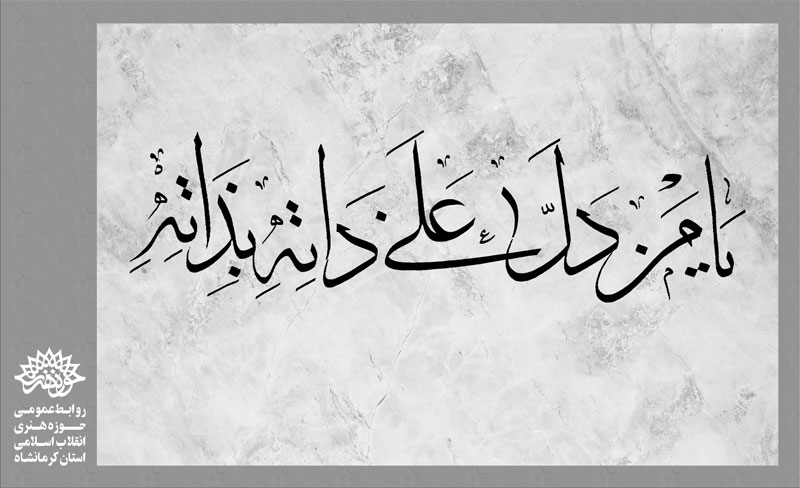 يَا مَنْ دَلَّ عَلَىٰ ذَاتِهِ بِذَاتِهِ
حوزه هنری
روابط عمومی
حوزه هنری
انقلاب اسلامی
استان کرمانشاه